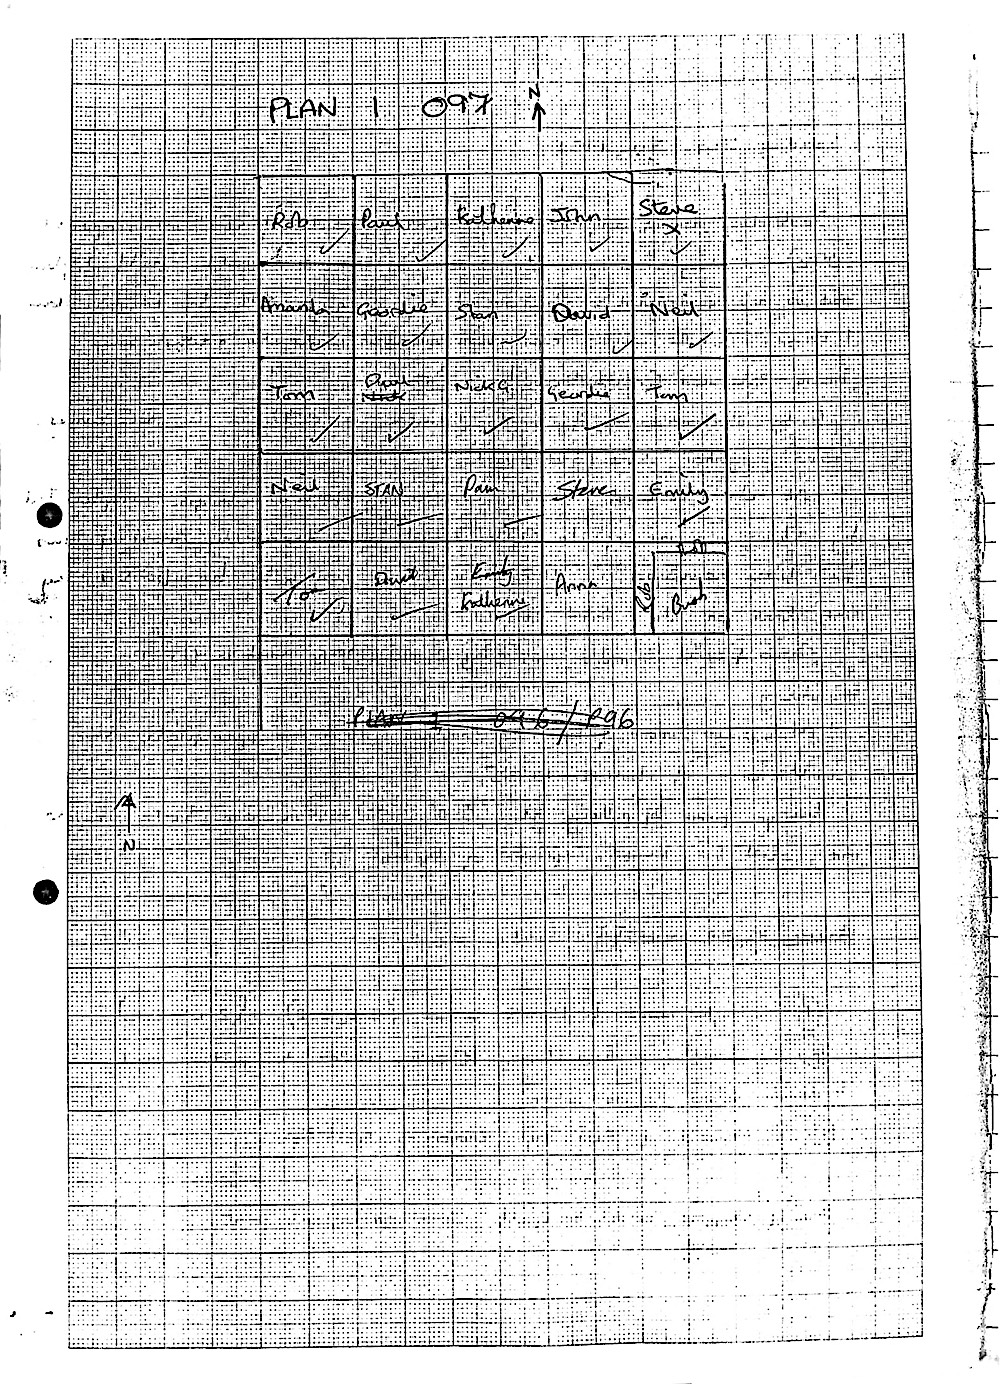 PLAN 1 097 N
Rob Paul Katherine John Steve
Amanda Geordie Stan David Neil
Tom Nick Nick G Geordie Tom
Neil STAN Pam Steve Emily
Tom David Emily Anna Rob
Katherine Bush
PLAN 1 096 / 096
N